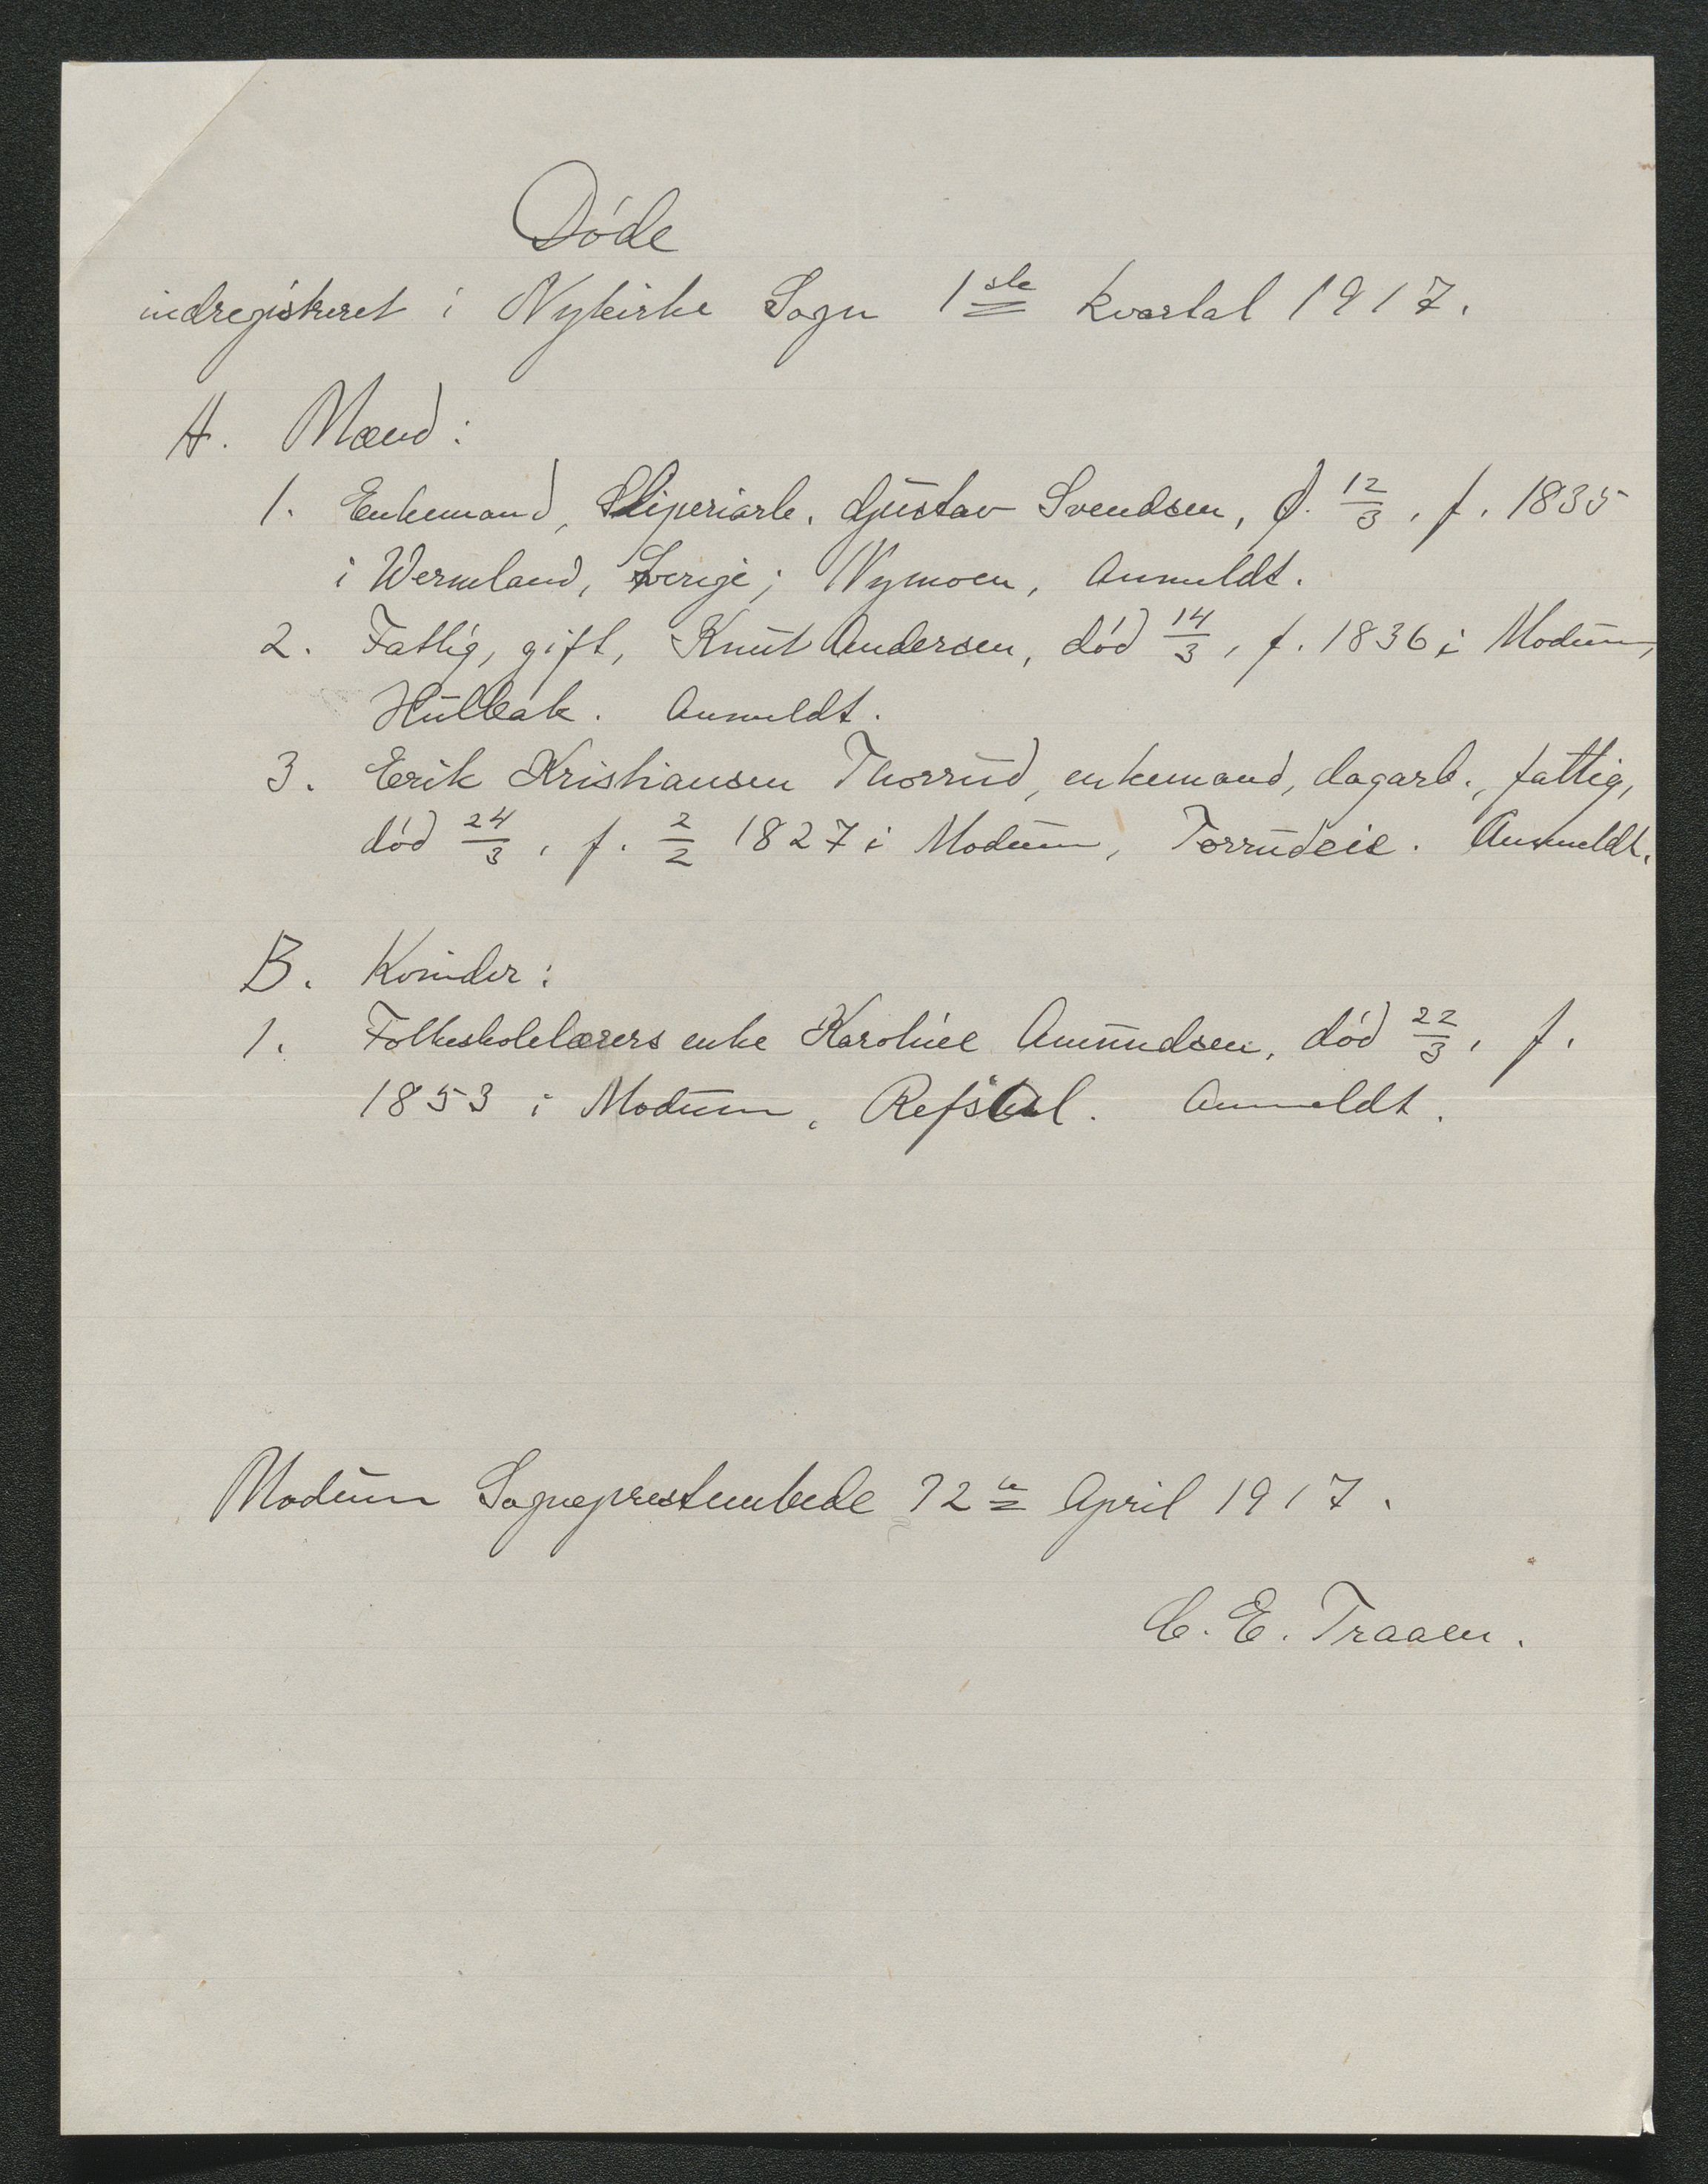 Døde
indregistreret i Nykirke Sogn 1ste kvartal 1917.
A. Mænd:
1. Enkemand, Sliperiarb. Gustav Svendsen, d. 12/3, f. 1835
i Wermland, Sverige; Nymoen, Anmeldt.
2. Fattig, gift, Knut Andersen, død 14/3, f. 1836 i Modum,
Hulbak. Anmeldt.
3. Erik Kristiansen Thorrud, enkemand, dagarb., fattig,
død 24/3, f. 2/2 1827 i Modum, Torrudeie. Anmeldt.
B. Kvinder:
1. Folkeskolelærers enke Karoline Amundsen, død 22/3, f.
1853 i Modum, Refsal. Anmeldt.
Modum Sogneprestembede 12te April 1917.
C. E. Traaen.